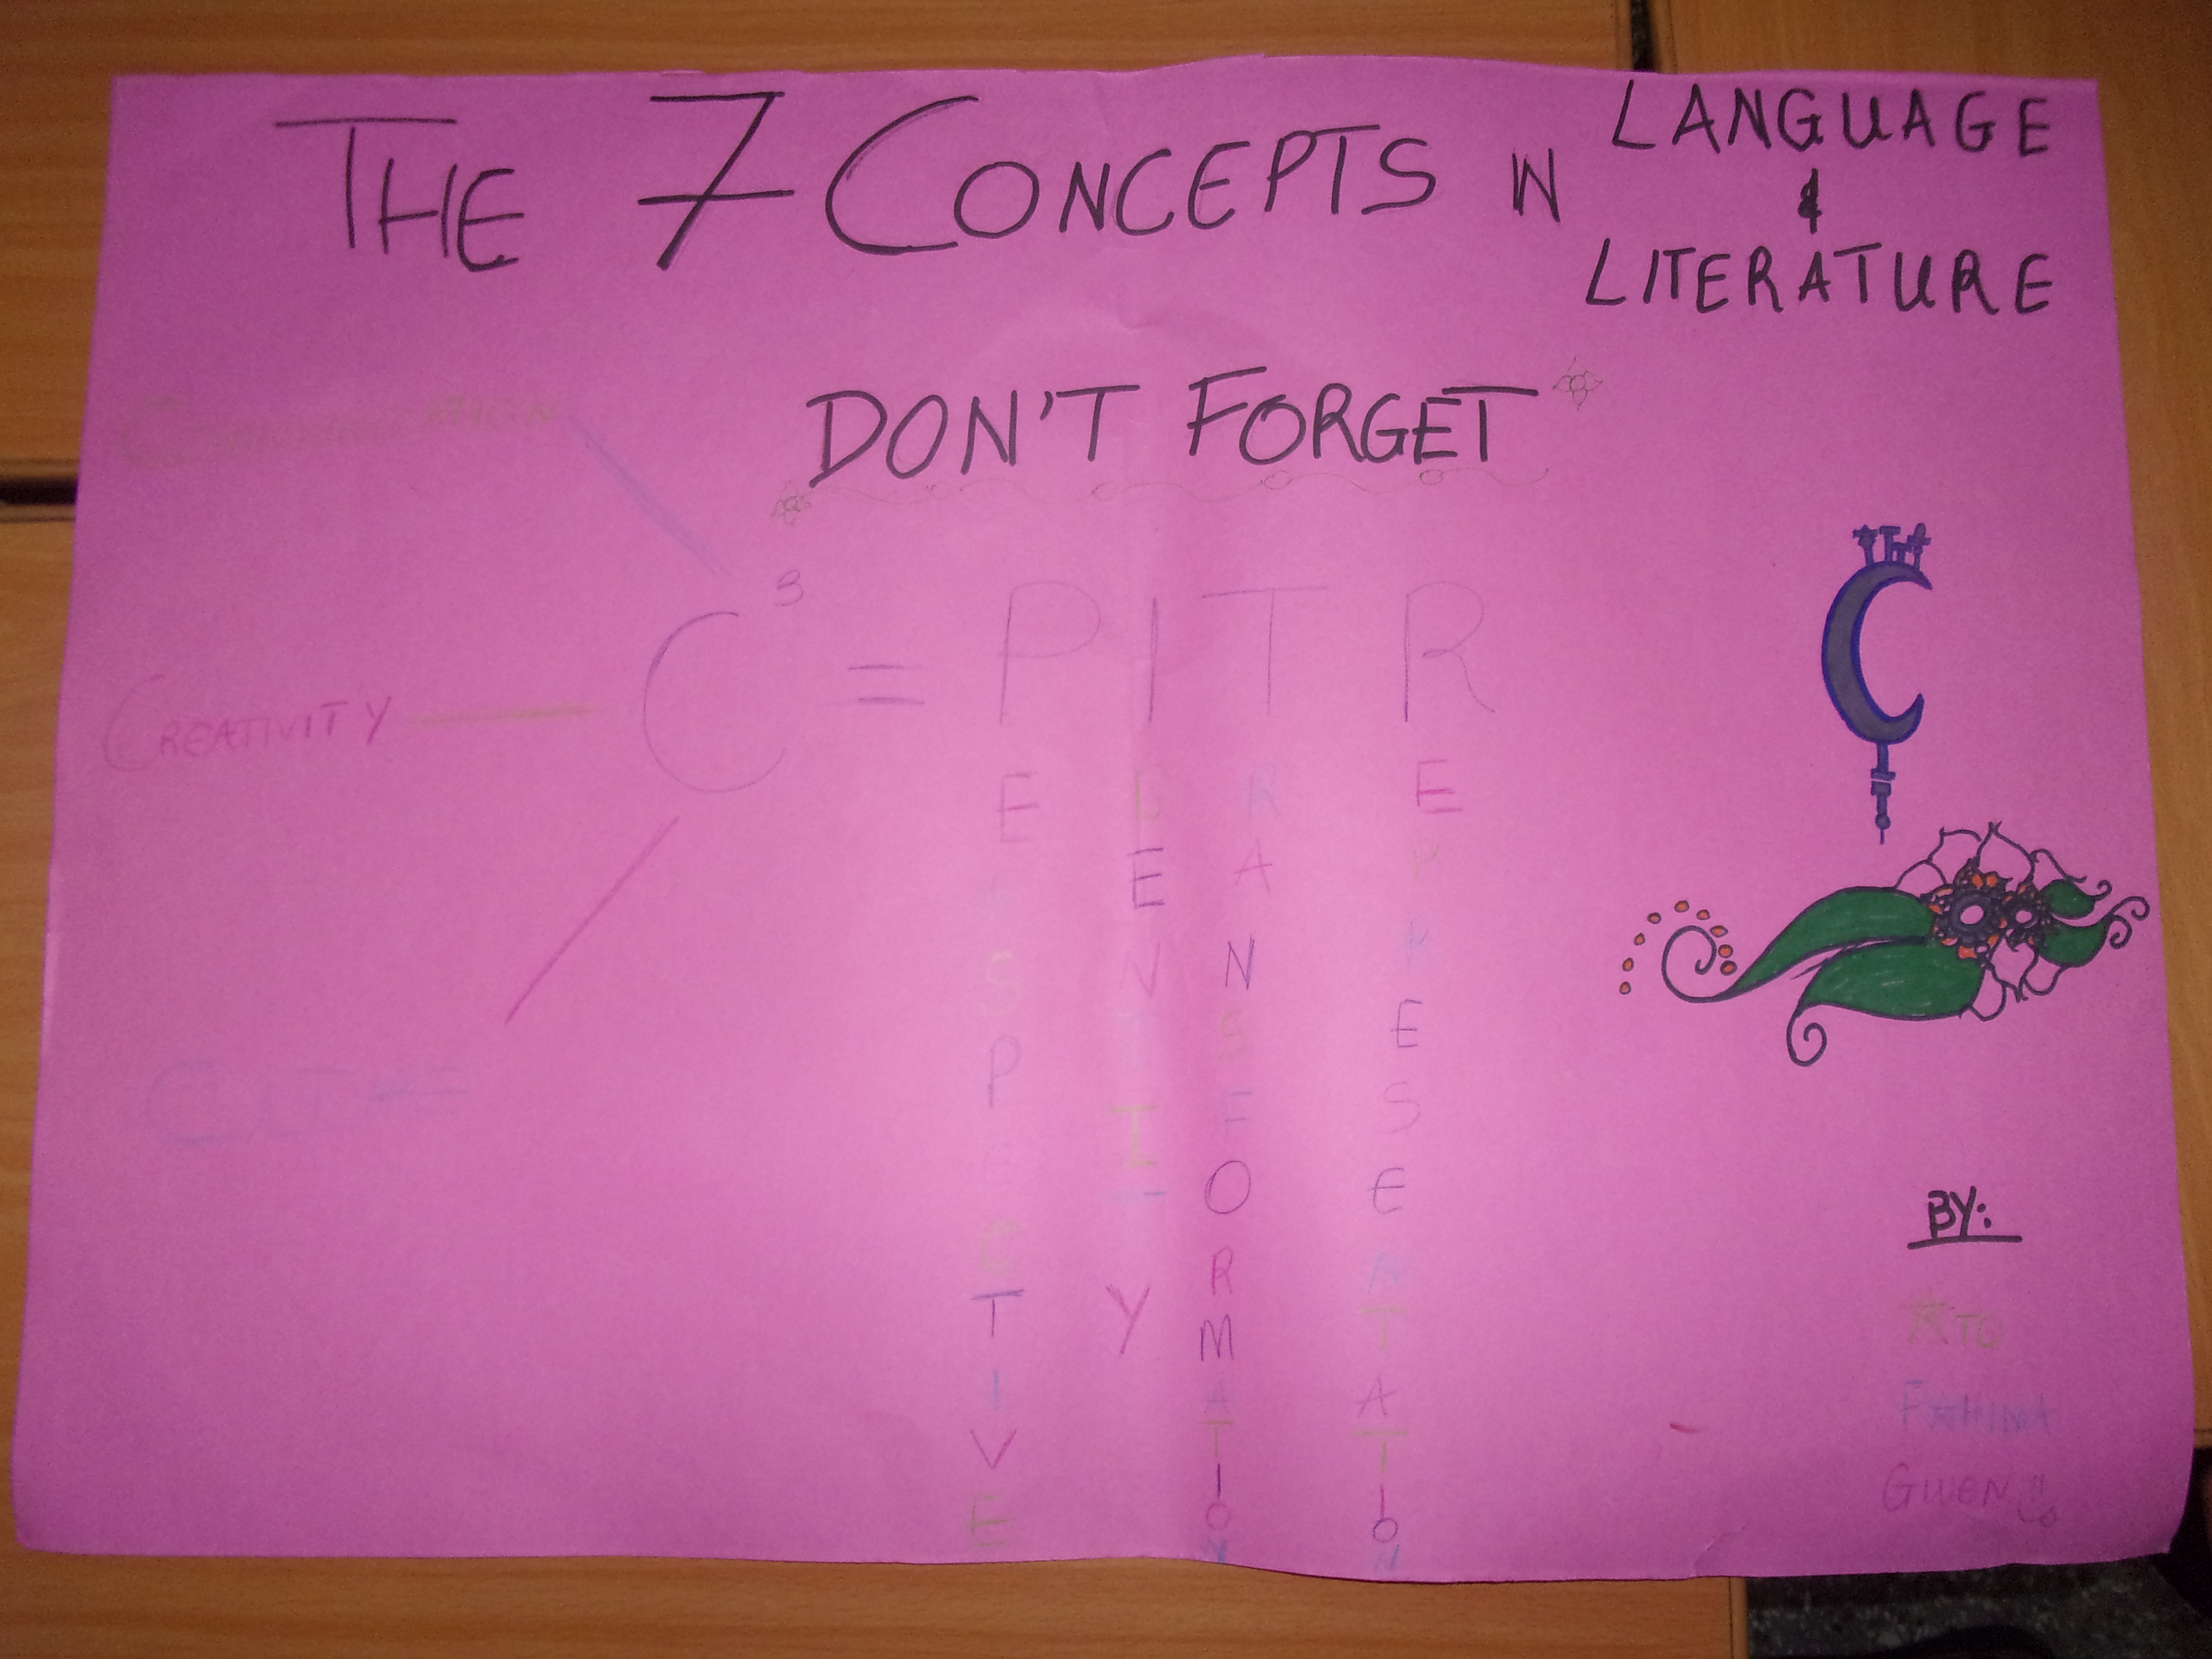 THE 7 CONCEPTS IN LANGUAGE
&
LITERATURE
DON'T FORGET
COMMUNICATION
CREATIVITY
C³ = PITR
PERSPECTIVE
IDENTITY
TRANSFORMATION
REPRESENTATION
BY:
FAHIMA
GWEN